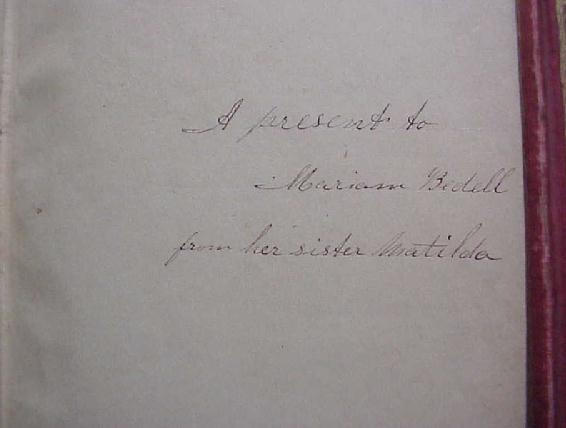 A present to
Mariam Bedell
from her sister Matilda